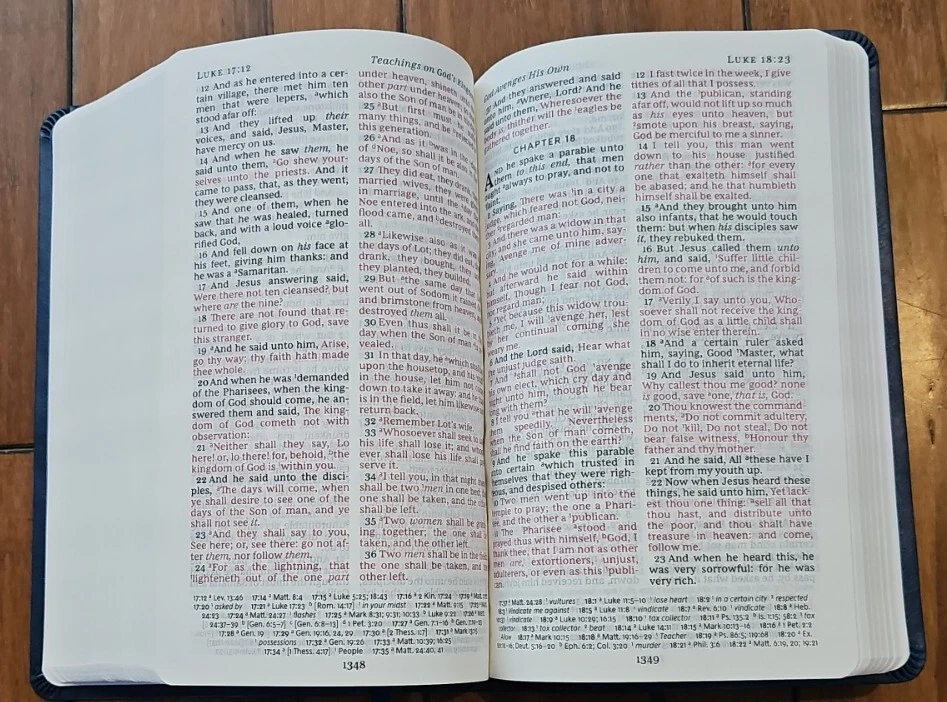 LUKE 17:12
12 And as he entered into a cer-
tain village, there met him ten
men that were lepers, ᵃwhich
stood afar off:
13 And they lifted up their
voices, and said, Jesus, Master,
have mercy on us.
14 And when he saw them, he
said unto them, ᵃGo shew your-
selves unto the priests. And it
came to pass, that, as they went,
they were cleansed.
15 And one of them, when he
saw that he was healed, turned
back, and with a loud voice ᵃglo-
rified God,
16 And fell down on his face at
his feet, giving him thanks: and
he was a ᵃSamaritan.
17 And Jesus answering said,
Were there not ten cleansed? but
where are the nine?
18 There are not found that re-
turned to give glory to God, save
this stranger.
19 ᵃAnd he said unto him, Arise,
go thy way: thy faith hath made
thee whole.
20 And when he was ¹demanded
of the Pharisees, when the king-
dom of God should come, he an-
swered them and said, The king-
dom of God cometh not with
observation:
21 ᵃNeither shall they say, Lo
here! or, lo there! for, behold, ᵇthe
kingdom of God is ¹within you.
22 And he said unto the disci-
ples, ᵃThe days will come, when
ye shall desire to see one of the
days of the Son of man, and ye
shall not see it.
23 ᵃAnd they shall say to you,
See here; or, see there: go not af-
ter them, nor follow them.
24 ᵃFor as the lightning, that
¹lighteneth out of the one part
Teachings on God's
under heaven, shineth
other part under heaven
also the Son of man be
25 ᵃBut first must
many things, and be
this generation.
26 ᵃAnd as it ᵇwas in the
of ᶜNoe, so shall it be
days of the Son of man.
27 They did eat, they drank,
married wives, they were
in marriage, until the
Noe entered into the ark,
flood came, and ᵇdestroyed
all.
28 ᵃLikewise also as it
the days of Lot; they did
drank, they bought, they
they planted, they builded;
29 But ᵃthe same day
went out of Sodom it rained
and brimstone from heaven,
destroyed them all.
30 Even thus shall it be
day when the Son of man
vealed.
31 In that day, he ᵃwhich
upon the housetop, and his
in the house, let him not
down to take it away: and he
is in the field, let him likewise
return back.
32 ᵃRemember Lot's wife.
33 ᵃWhosoever shall seek to
his life shall lose it; and
ever shall lose his life shall
serve it.
34 ᵃI tell you, in that night
shall be two ¹men in one bed;
one shall be taken, and the
shall be left.
35 ᵃTwo women shall be
ing together; the one shall
taken, and the other left.
36 Two men shall be in the
the one shall be taken, and
other left.
17:12 ᵃ Lev. 13:46 17:14 ᵃ Matt. 8:4 17:15 ᵃ Luke 5:25; 18:43 17:16 ᵃ 2 Kin. 17:24
17:20 ¹ asked by 17:21 ᵃ Luke 17:23 ᵇ [Rom. 14:17] ¹ in your midst 17:22 ᵃ Matt. 9:15
24:23 17:24 ᵃ Matt. 24:27 ¹ flashes 17:25 ᵃ Mark 8:31; 9:31; 10:33
24:37–39 ᵇ [Gen. 6:5–7] ᶜ [Gen. 6:8–13] 1 Pet. 3:20 17:27 ᵃ Gen. 7:1–16
17:28 ᵃ Gen. 19 17:29 ᵃ Gen. 19:16, 24, 29 17:30 ᵃ [2 Thess. 1:7]
¹ possessions 17:32 ᵃ Gen. 19:26 17:33 ᵃ Matt. 10:39; 16:25
17:34 ᵃ [1 Thess. 4:17] ¹ People 17:35 ᵃ Matt. 24:40, 41
1348
God Avenges His Own
they answered and said
unto him, ᵃWhere, Lord? And he
said unto them, Wheresoever the
is, thither will the ¹eagles be
gathered together.
CHAPTER 18
AND he spake a parable unto
them to this end, that men
ought ᵃalways to pray, and not to
faint;
2 Saying, There was ¹in a city a
judge, which feared not God, nei-
ther ²regarded man:
3 And there was a widow in that
city; and she came unto him, say-
ing, ¹Avenge me of mine adver-
sary.
4 And he would not for a while:
but afterward he said within
himself, Though I fear not God,
nor regard man;
5 ᵃYet because this widow trou-
bleth me, I will ¹avenge her, lest
by her continual coming she
weary me.
6 And the Lord said, Hear what
the unjust judge saith.
7 And ᵃshall not God ¹avenge
his own elect, which cry day and
night unto him, though he bear
long with them?
8 I tell you ᵃthat he will ¹avenge
them speedily. Nevertheless
when the Son of man cometh,
shall he find faith on the earth?
9 And he spake this parable
unto certain ᵃwhich trusted in
themselves that they were righ-
teous, and despised others:
10 Two men went up into the
temple to pray; the one a Phari-
see, and the other a ¹publican.
11 The Pharisee ᵃstood and
prayed thus with himself, ᵇGod, I
thank thee, that I am not as other
men are, extortioners, unjust,
adulterers, or even as this ¹publi-
can.
LUKE 18:23
12 I fast twice in the week, I give
tithes of all that I possess.
13 And the ¹publican, standing
afar off, would not lift up so much
as his eyes unto heaven, but
²smote upon his breast, saying,
God be merciful to me a sinner.
14 I tell you, this man went
down to his house justified
rather than the other: ᵃfor every
one that exalteth himself shall
be abased; and he that humbleth
himself shall be exalted.
15 ᵃAnd they brought unto him
also infants, that he would touch
them: but when his disciples saw
it, they rebuked them.
16 But Jesus called them unto
him, and said, ᵃSuffer little chil-
dren to come unto me, and forbid
them not: for ᵃof such is the king-
dom of God.
17 ᵃVerily I say unto you, Who-
soever shall not receive the king-
dom of God as a little child shall
in no wise enter therein.
18 ᵃAnd a certain ruler asked
him, saying, Good ¹Master, what
shall I do to inherit eternal life?
19 And Jesus said unto him,
Why callest thou me good? none
is good, save ᵃone, that is, God.
20 Thou knowest the command-
ments, ᵃDo not commit adultery,
Do not ¹kill, Do not steal, Do not
bear false witness, ᵇHonour thy
father and thy mother.
21 And he said, All ᵃthese have I
kept from my youth up.
22 Now when Jesus heard these
things, he said unto him, Yet lack-
est thou one thing: ᵃsell all that
thou hast, and distribute unto
the poor, and thou shalt have
treasure in heaven: and come,
follow me.
23 And when he heard this, he
was very sorrowful: for he was
very rich.
Matt. 24:28 ¹ vultures 18:1 ᵃ Luke 11:5–10 ¹ lose heart 18:2 ¹ in a certain city ² respected
vindicate me against 18:5 ᵃ Luke 11:8 ¹ vindicate 18:7 ᵃ Rev. 6:10 ¹ vindicate 18:8 ᵃ Heb.
vindicate 18:9 ᵃ Luke 10:29; 16:15 18:10 ¹ tax collector 18:11 ᵃ Ps. 135:2 ᵇ Is. 1:15; 58:2 ¹ tax
collector 18:13 ¹ tax collector ² beat 18:14 ᵃ Luke 14:11 18:15 ᵃ Mark 10:13–16 18:16 ᵃ 1 Pet. 2:2
¹ Allow 18:17 ᵃ Mark 10:15 18:18 ᵃ Matt. 19:16–29 ¹ Teacher 18:19 ᵃ Ps. 86:5; 119:68 18:20 ᵃ Ex.
Deut. 5:16–20 ᵇ Eph. 6:2; Col. 3:20 ¹ murder 18:21 ᵃ Phil. 3:6 18:22 ᵃ Matt. 6:19, 20; 19:21
1349